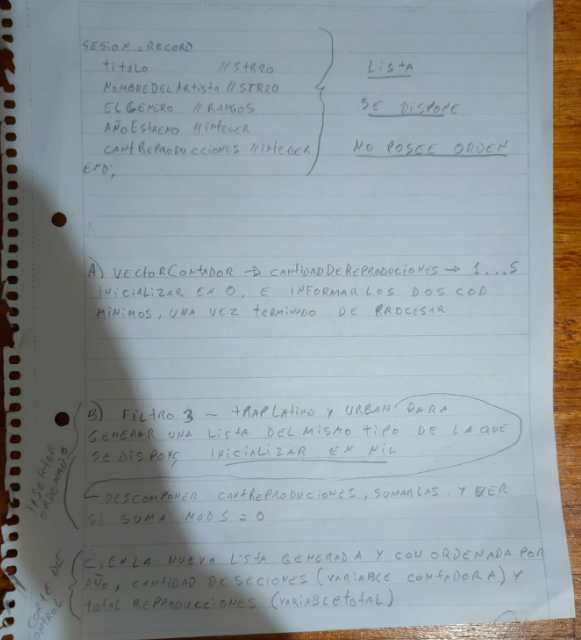 SESION = RECORD
TITULO //STR20
LISTA
NOMBREDELARTISTA //STR20
ELGENERO //RANGOS
SE DISPONE
AÑOESTRENO //INTEGER
CANTREPRODUCCIONES //INTEGER
NO POSEE ORDEN
END;
A) VECTORCONTADOR → CANTIDADDEREPRODUCIONES → 1...5
INICIALIZAR EN 0, E INFORMAR LOS DOS COD
MINIMOS, UNA VEZ TERMINADO DE PROCESAR
INSERTAR
ORDENADO
B) FILTRO 3 ~ TRAPLATINO Y URBAN PARA
GENERAR UNA LISTA DEL MISMO TIPO DE LA QUE
SE DISPONE, INICIALIZAR EN NIL
DESCOMPONER CANTREPRODUCIONES, SUMARLAS Y VER
SI SUMA MOD 5 = 0
CORTE DE
CONTROL
C) EN LA NUEVA LISTA GENERADA Y CON ORDENADA POR
AÑO, CANTIDAD DE SECIONES (VARIABLE CONTADORA) Y
TOTAL REPRODUCCIONES (VARIABLETOTAL)